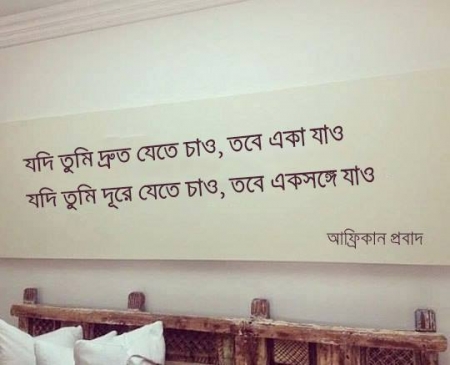 যদি তুমি দ্রুত যেতে চাও, তবে একা যাও
যদি তুমি দূরে যেতে চাও, তবে একসঙ্গে যাও
আফ্রিকান প্রবাদ